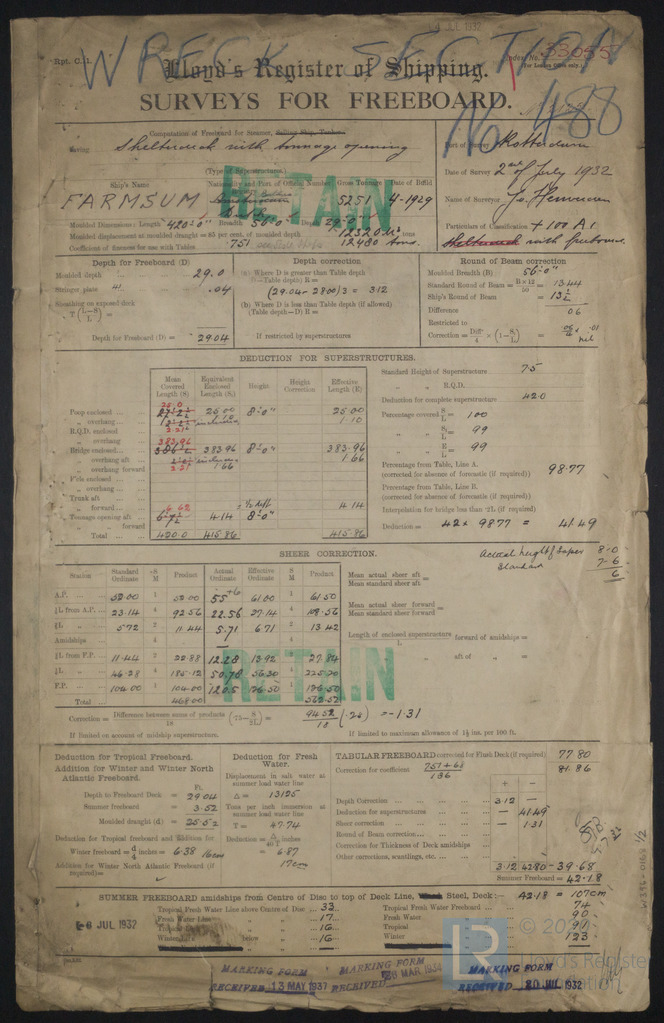 14 JUL 1932
Rpt. C.11.
WRECK SECTION
Index No. 33055
(For London Office only.)
Lloyd's Register of Shipping.
SURVEYS FOR FREEBOARD.
No 488
Computation of Freeboard for Summer, Sailing Ship, Tanker.
having Shelterdeck with tonnage opening
(Type of Superstructures.)
Port of Survey Rotterdam
Date of Survey 2nd of July 1932
Name of Surveyor
Particulars of Classification +100 A1
Shelterdeck with freeboard.
RETAIN
Ship's Name Nationality and Port of Official Number Gross Tonnage Date of Build
FARMSUM 5251 4-1929
Moulded Dimensions: Length 420'-0" Breadth 56'-0" Depth 29'-0"
Moulded displacement at moulded draught = 85 per cent. of moulded depth 12320 M3 tons
12480 tons.
Coefficient of fineness for use with Tables .751
Depth for Freeboard (D)
Moulded depth 29.0
Stringer plate .04
Sheathing on exposed deck
T (L-S / L) =
Depth for Freeboard (D) = 29.04
Depth correction
(a) Where D is greater than Table depth
(D-Table depth) R =
(29.04-28.00) 3 = 3.12
(b) Where D is less than Table depth (if allowed)
(Table depth-D) R =
If restricted by superstructures
Round of Beam correction
Moulded Breadth (B) 56'-0"
Standard Round of Beam = B×12 / 50 = 13.44
Ship's Round of Beam = 13½
Difference .06
Restricted to
Correction = Diff / 4 × (1 - S₁ / L) = .06 / 4 × .01
nil
DEDUCTION FOR SUPERSTRUCTURES.
Mean Covered Length (S) Equivalent Enclosed Length (S₁) Height Height Correction Effective Length (E)
Poop enclosed 25.0 25.00 8'-0" 25.00
„ overhang 1.10 1.10
R.Q.D. enclosed
„ overhang
Bridge enclosed 383.96 383.96 8'-0" 383.96
„ overhang aft 1.66 1.66
„ overhang forward 2.21
F'cle enclosed
„ overhang
Trunk aft
„ forward
Tonnage opening aft 6.62 4.14 8'-0" 4.14
„ forward
Total 420.0 415.86 415.86
Standard Height of Superstructure 7.5
„ „ R.Q.D.
Deduction for complete superstructure 42.0
Percentage covered S / L = 100
„ „ S₁ / L = 99
„ „ E / L = 99
Percentage from Table, Line A. 98.77
(corrected for absence of forecastle (if required))
Percentage from Table, Line B.
(corrected for absence of forecastle (if required))
Interpolation for bridge less than .2L (if required)
Deduction = 42 × 98.77 = 41.49
SHEER CORRECTION.
Station Standard Ordinate S M Product Actual Ordinate Effective Ordinate S M Product
A.P. 52.00 1 52.00 55+6 61.00 1 61.50
¼L from A.P. 23.14 4 92.56 22.56 27.14 4 108.56
¾L 5.72 2 11.44 5.71 6.71 2 13.42
Amidships 4 4
¾L from F.P. 11.44 2 22.88 12.28 13.92 2 27.84
¼L 46.28 4 185.12 50.78 56.30 4 225.20
F.P. 104.00 1 104.00 120.5 126.50 1 126.50
Total 468.00 562.52
Actual height of super 8-0
Standard 7-6
6
Mean actual sheer aft =
Mean standard sheer aft
Mean actual sheer forward =
Mean standard sheer forward
Length of enclosed superstructure / L forward of amidships =
„ „ aft of „ =
RETAIN
Correction = Difference between sums of products / 18 (.75 - S / 2L) = 94.52 / 18 (.25) = -1.31
If limited on account of midship superstructure. If limited to maximum allowance of 1½ ins. per 100 ft.
Deduction for Tropical Freeboard.
Addition for Winter and Winter North Atlantic Freeboard.
Ft.
Depth to Freeboard Deck = 29.04
Summer freeboard = 3.52
Moulded draught (d) = 25.52
Deduction for Tropical freeboard and Addition for
Winter freeboard = d / 4 inches = 6.38 16cm
Addition for Winter North Atlantic Freeboard (if required) =
Deduction for Fresh Water.
Displacement in salt water at summer load water line
Δ = 13125
Tons per inch immersion at summer load water line
T = 47.74
Deduction = Δ / 40 T inches
= 6.87
17cm
TABULAR FREEBOARD corrected for Flush Deck (if required) 77.80
Correction for coefficient .751+.68 / 1.36 81.86
+ -
Depth Correction 3.12 -
Deduction for superstructures - 41.49
Sheer correction - 1.31
Round of Beam correction
Correction for Thickness of Deck amidships
Other corrections, scantlings, etc.
3.12 42.80 -39.68
Summer Freeboard = 42.18
SUMMER FREEBOARD amidships from Centre of Disc to top of Deck Line, Steel, Deck:- 42.18 = 107cm
Tropical Fresh Water Line above Centre of Disc 33 Tropical Fresh Water Freeboard 74
Fresh Water Line „ „ 17 Fresh Water „ 90
Tropical Line „ „ 16 Tropical „ 91
Winter Line below „ 16 Winter „ 123
JUL 1932
MARKING FORM
RECEIVED 13 MAY 1937
MARKING FORM
RECEIVED 26 MAR 1934
MARKING FORM
RECEIVED 20 JUL 1932
W336-0165 1/2
LR
© 20
Lloyd's Register